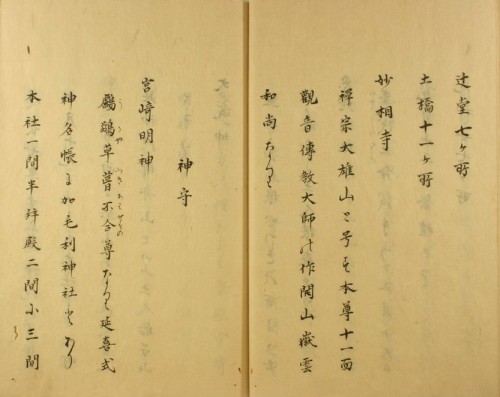 辻堂七ヶ所
土橋十一ヶ所
妙相寺
禅宗大雄山と号す本尊十一面
觀音傳教大師の作開山嶽雲
和尚なりと
神守
宮崎明神
鸕鷀草葺不合尊なりと延喜式
神名帳に加毛利神社とあり
本社一間半拜殿二間に三間